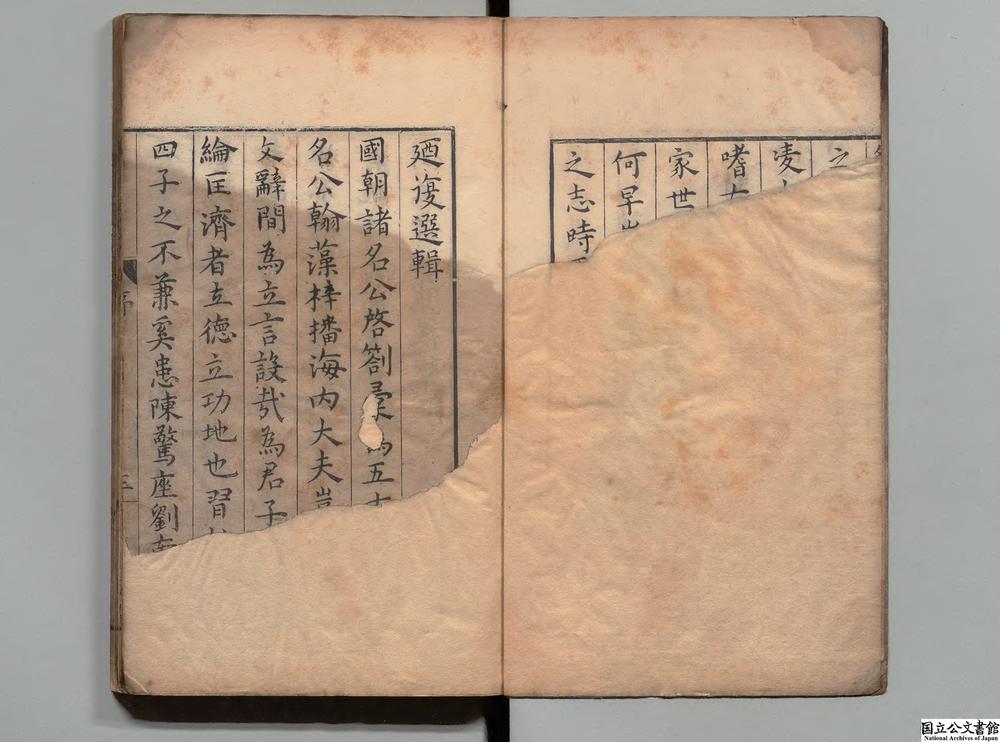 之
凌
嗜
家世
何早
之志時
廼復選輯
國朝諸名公啓劄彙爲五
名公翰藻梓播海內大夫豈
文辭間為立言設哉為君子
綸匡濟者立德立功地也習
四子之不兼奚患陳驚座劉
序
三
国立公文書館
National Archives of Japan